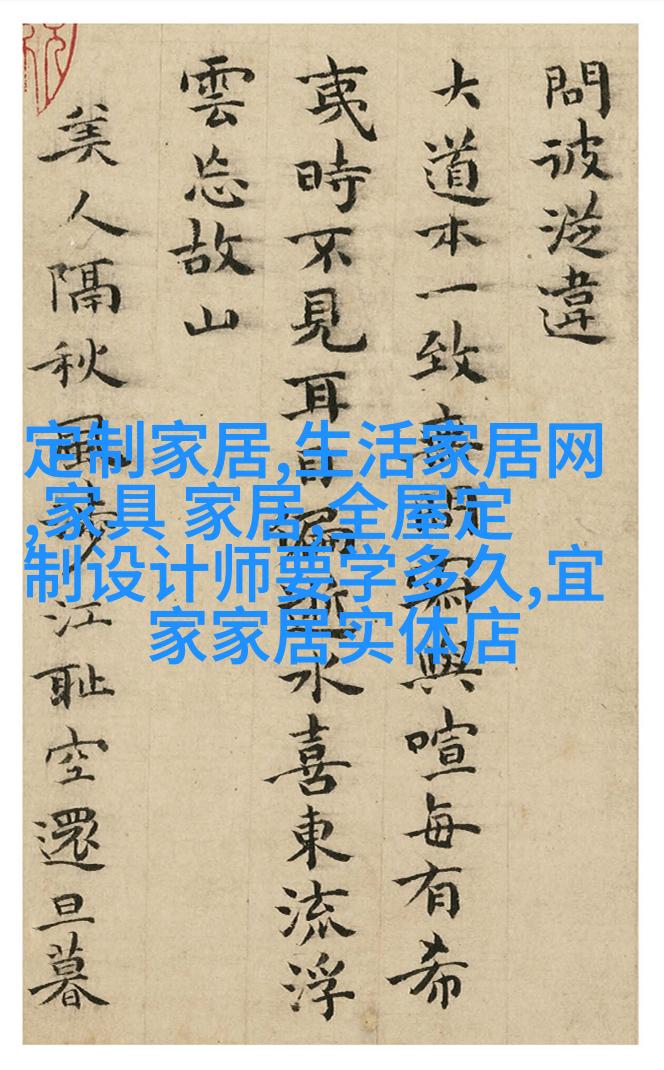 問彼從違
大道本一致與喧每有希
夷時不見耳目水喜東流浮
雲忘故山
美人隔秋風江耻空還旦暮
定制家居,生活家居网
,家具 家居,全屋定
制设计师要学多久,宜
家家居实体店